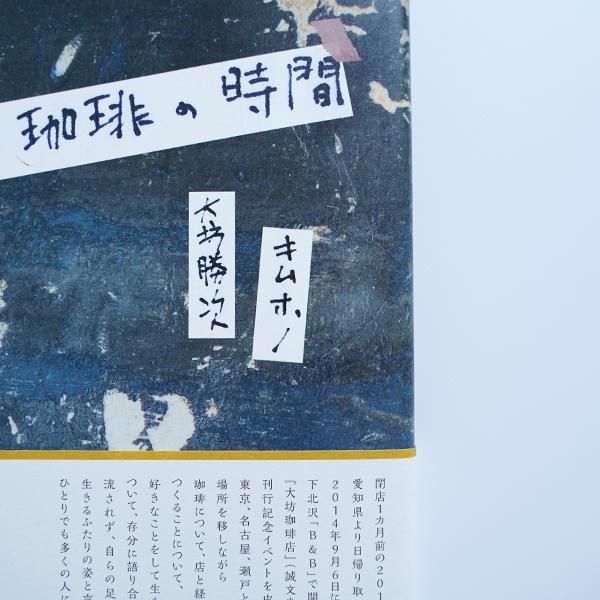 珈琲の時間
大坊勝次
キムホノ
閉店1カ月前の201
愛知県より日帰り取
2014年9月6日に
下北沢「B&B」で開
『大坊珈琲店』(誠文
刊行記念イベントを皮
東京、名古屋、瀬戸と
場所を移しながら
珈琲について、店と経
つくることについて、
好きなことをして生
ついて、存分に語り合
流されず、自らの足
生きるふたりの姿と言
ひとりでも多くの人に